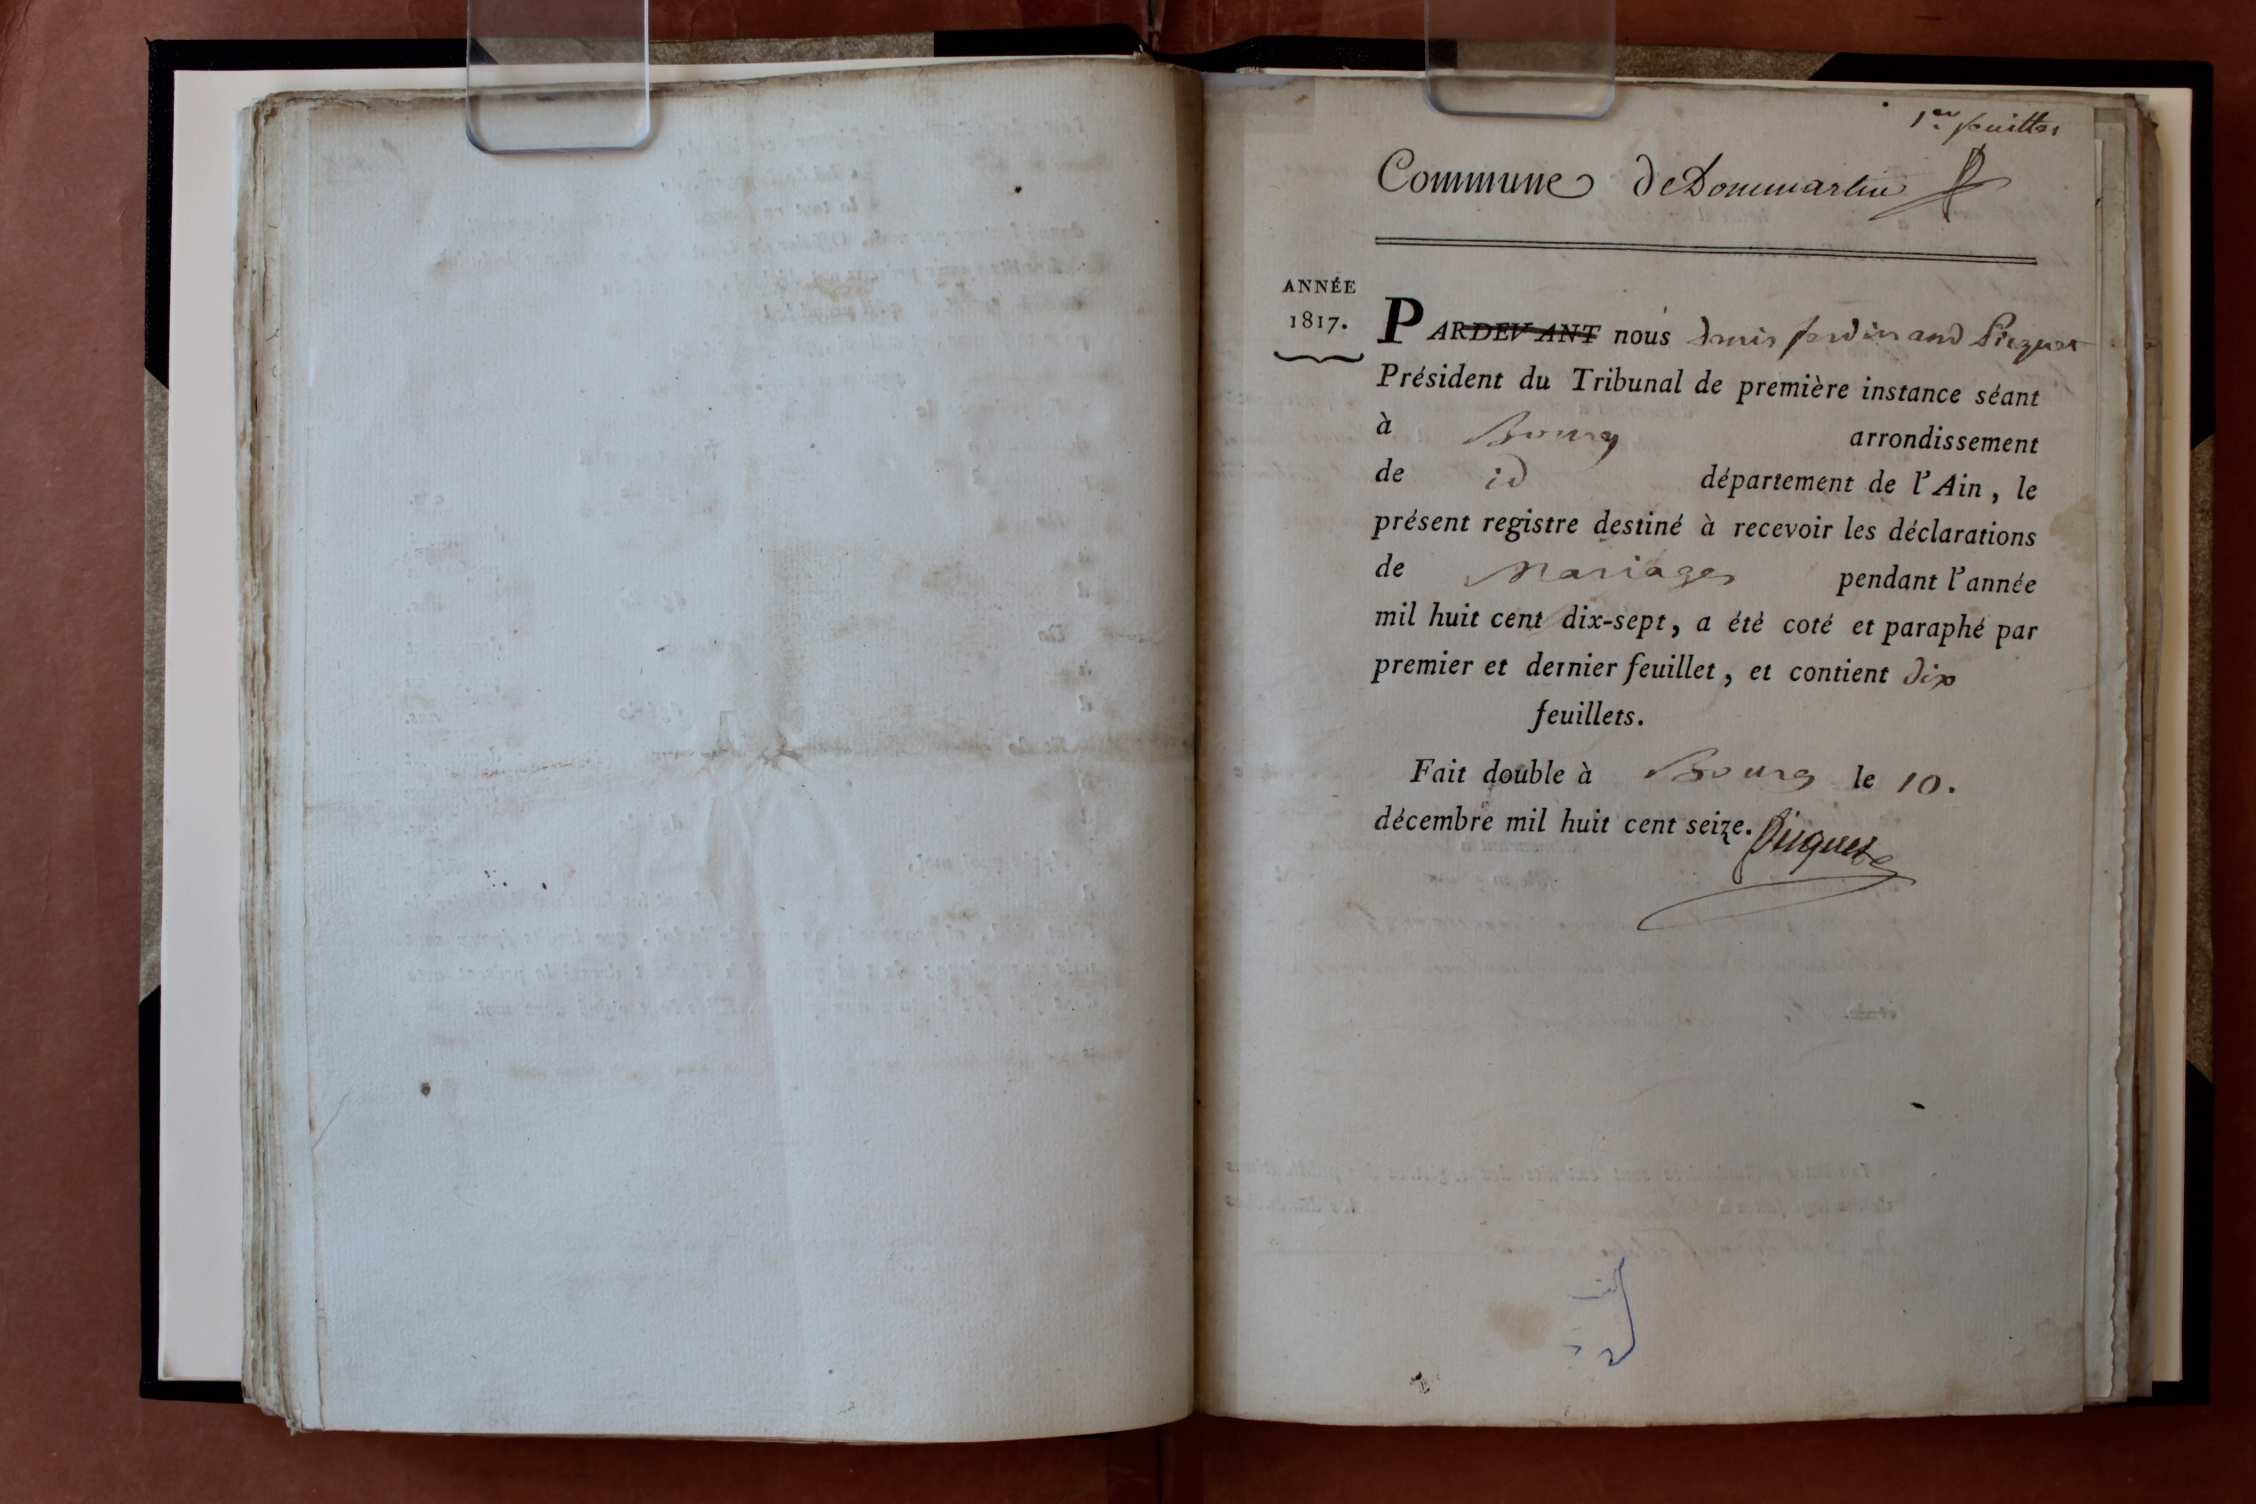 1er feuillet
Commune de Dommartin
ANNÉE
1817.
PARDEVANT nous denis ferdinand Picquet
Président du Tribunal de première instance séant
à Bourg arrondissement
de id département de l'Ain, le
présent registre destiné à recevoir les déclarations
de Mariages pendant l'année
mil huit cent dix-sept, a été coté et paraphé par
premier et dernier feuillet, et contient dix
feuillets.
Fait double à Bourg le 10.
décembre mil huit cent seize. Picquet